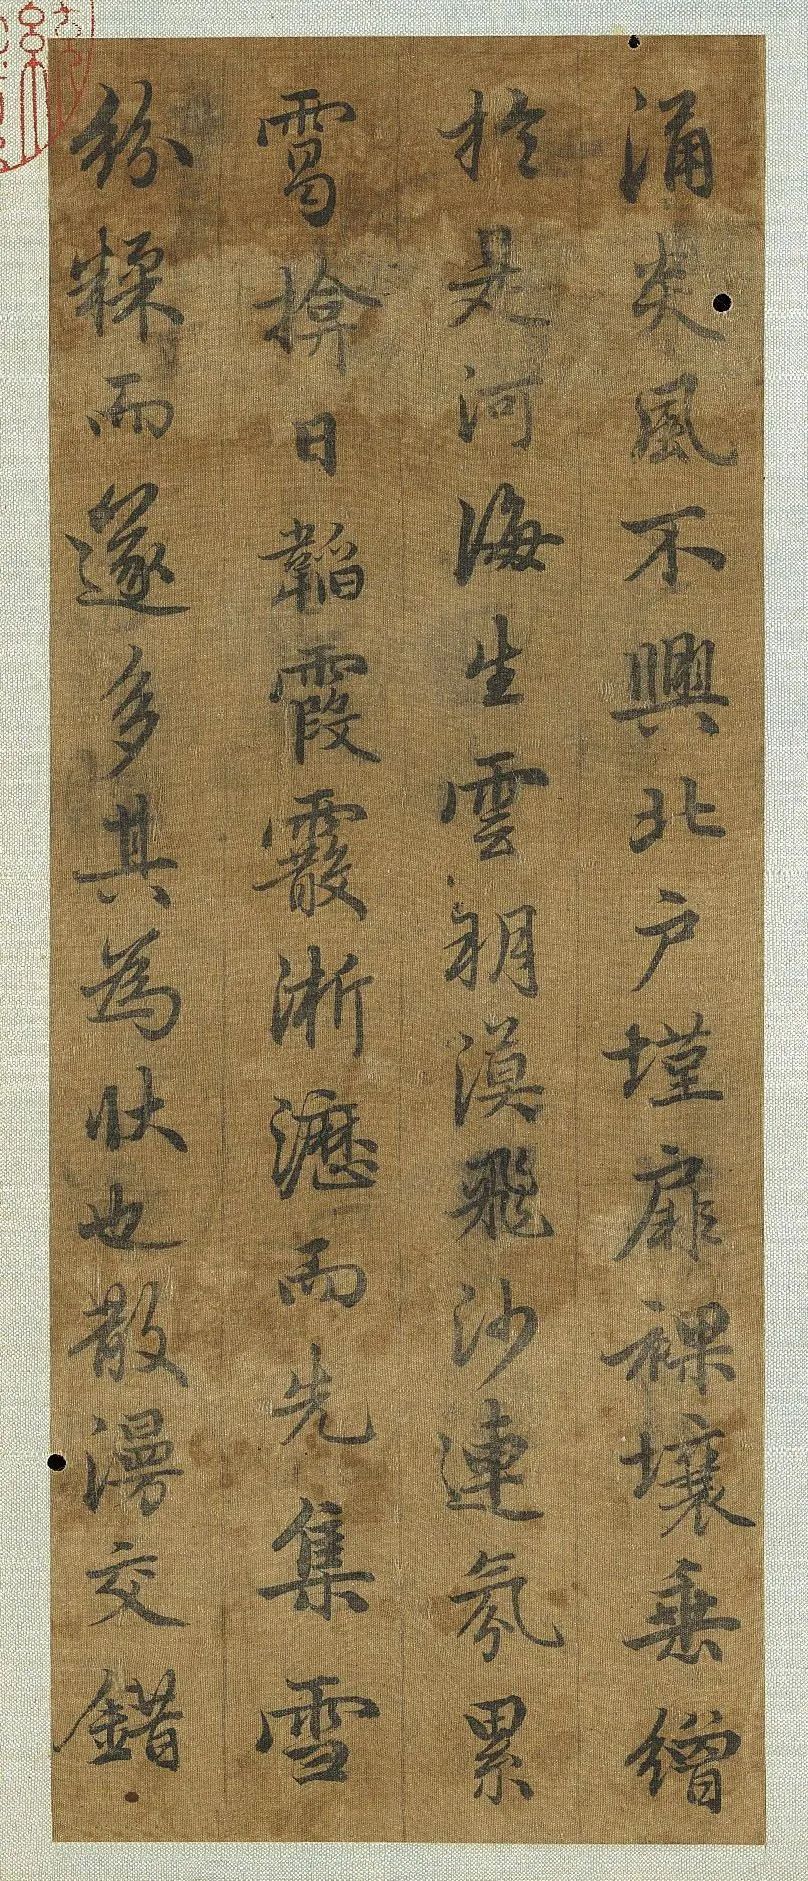 涌炎風不興北戶墐扉裸壤垂繒
於是河海生雲朔漠飛沙連氛累
霭揜日韜霞霰淅瀝而先集雪
紛糅而遂多其為狀也散漫交錯